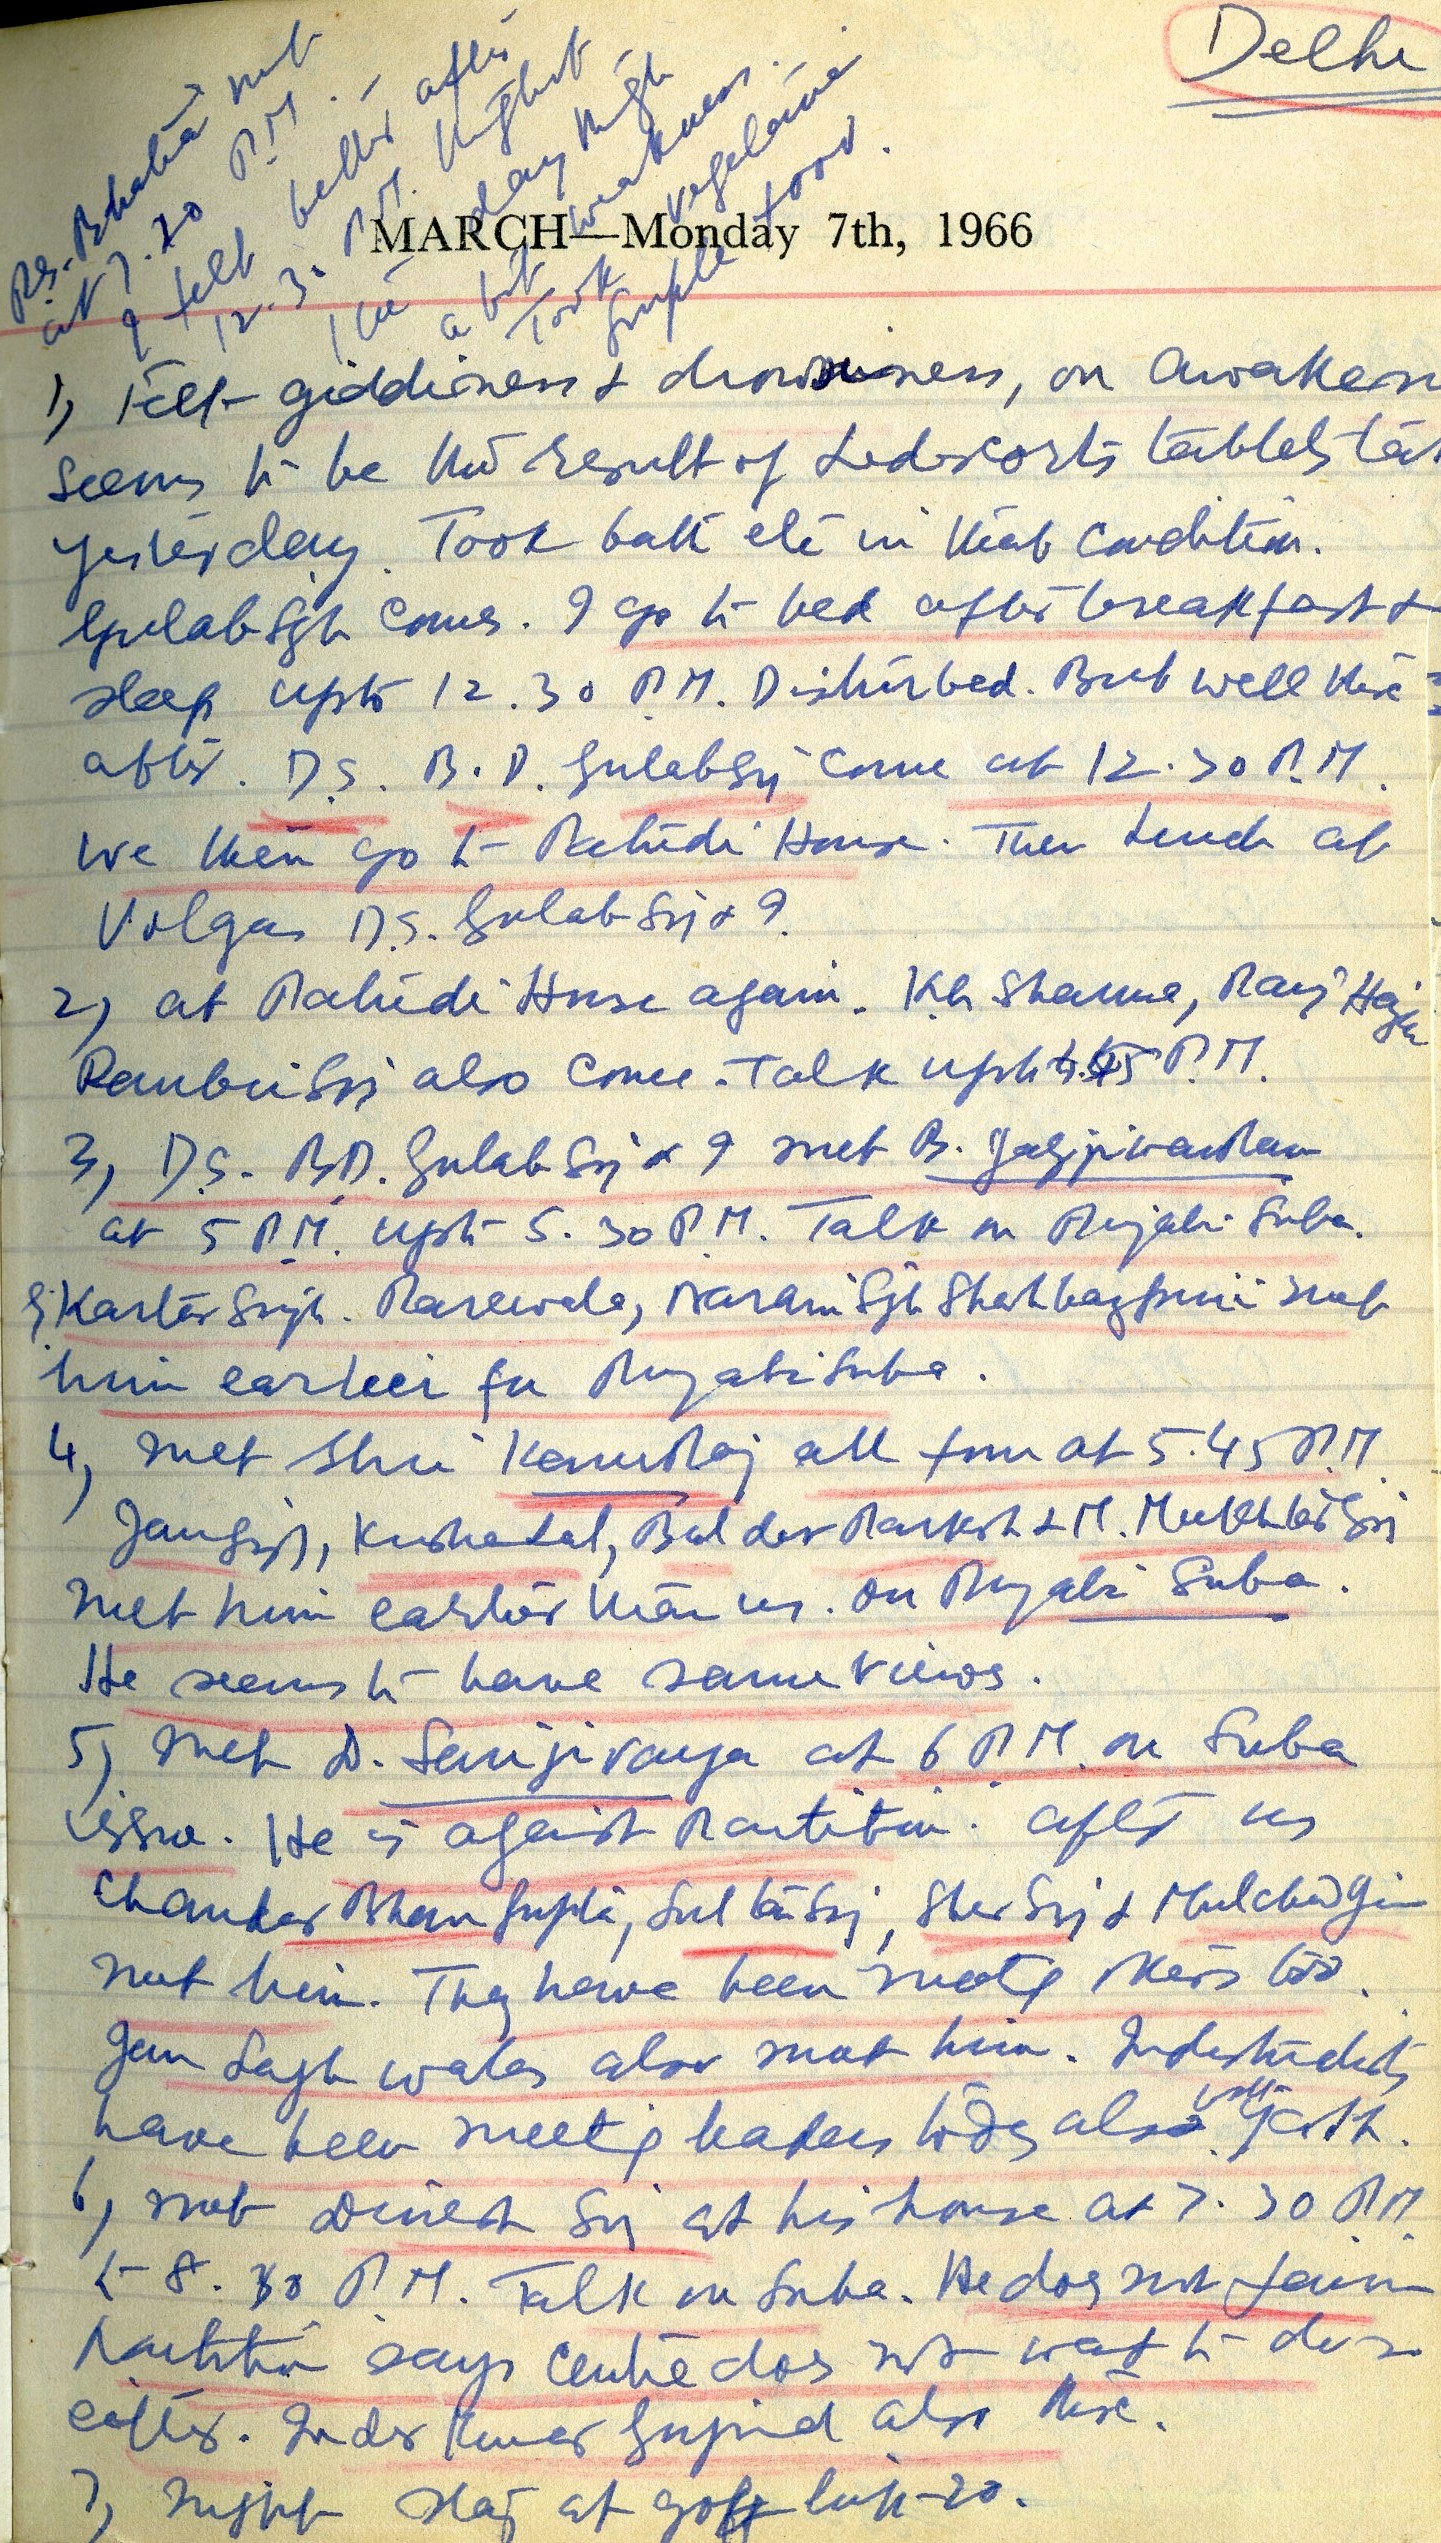 Delhi
Ps. Bhatia met
at 7.20 P.M.
I felt better after
12.30 P.M.
the day
a bit weakness.
Took vegetarine
Simple food.
MARCH—Monday 7th, 1966
1, Felt giddiness & drowsiness, on awaken
Seems to be the result of Ledercorts tablets tak
yesterday. Took bath etc in that condition.
Gulab Sgh comes. I go to bed after breakfast &
sleep upto 12.30 P.M. Disturbed. But well there
after. D.S. B.D. Gulab Sij come at 12.30 P.M.
We then go to House. Then Lunch at
Volgas D.S. Gulab Sij & I.
2, at House again. K.L. Sharma,
Ranbir Sij also come. Talk upto P.M.
3, D.S. B.D. Gulab Sij & I met B. Jagjiwan Ram
at 5 P.M. upto 5.30 P.M. Talk on Punjabi Suba.
G. Kartar Singh. Rarewala, Narain Sgh Shahbazpuri met
him earlier for Punjabi Suba.
4, met Shri Kamraj all four at 5.45 P.M.
Jangsij, Krisha Lal, Baldev Parkash & M. Mukhtiar Sij
met him earlier than us. on Punjabi Suba.
He seems to have same views.
5, met D. Sanjivayya at 6 P.M. on Suba
issue. He is against Partition. after us
Chander Bhan Gupta, Sultan Sij, Sher Sij & Mulchand Jain
met him. They have been meetg others too.
Jan Sagh walas also met him. Industrialists
have been meetg leaders today also with Yash.
6, met Dinesh Sij at his house at 7.30 P.M.
to 8.30 P.M. Talk on Suba. He does not favour
Partition says Centre does not want to do so
either. Inder Kumar Gujral also there.
7, Night stay at Golf link-20.